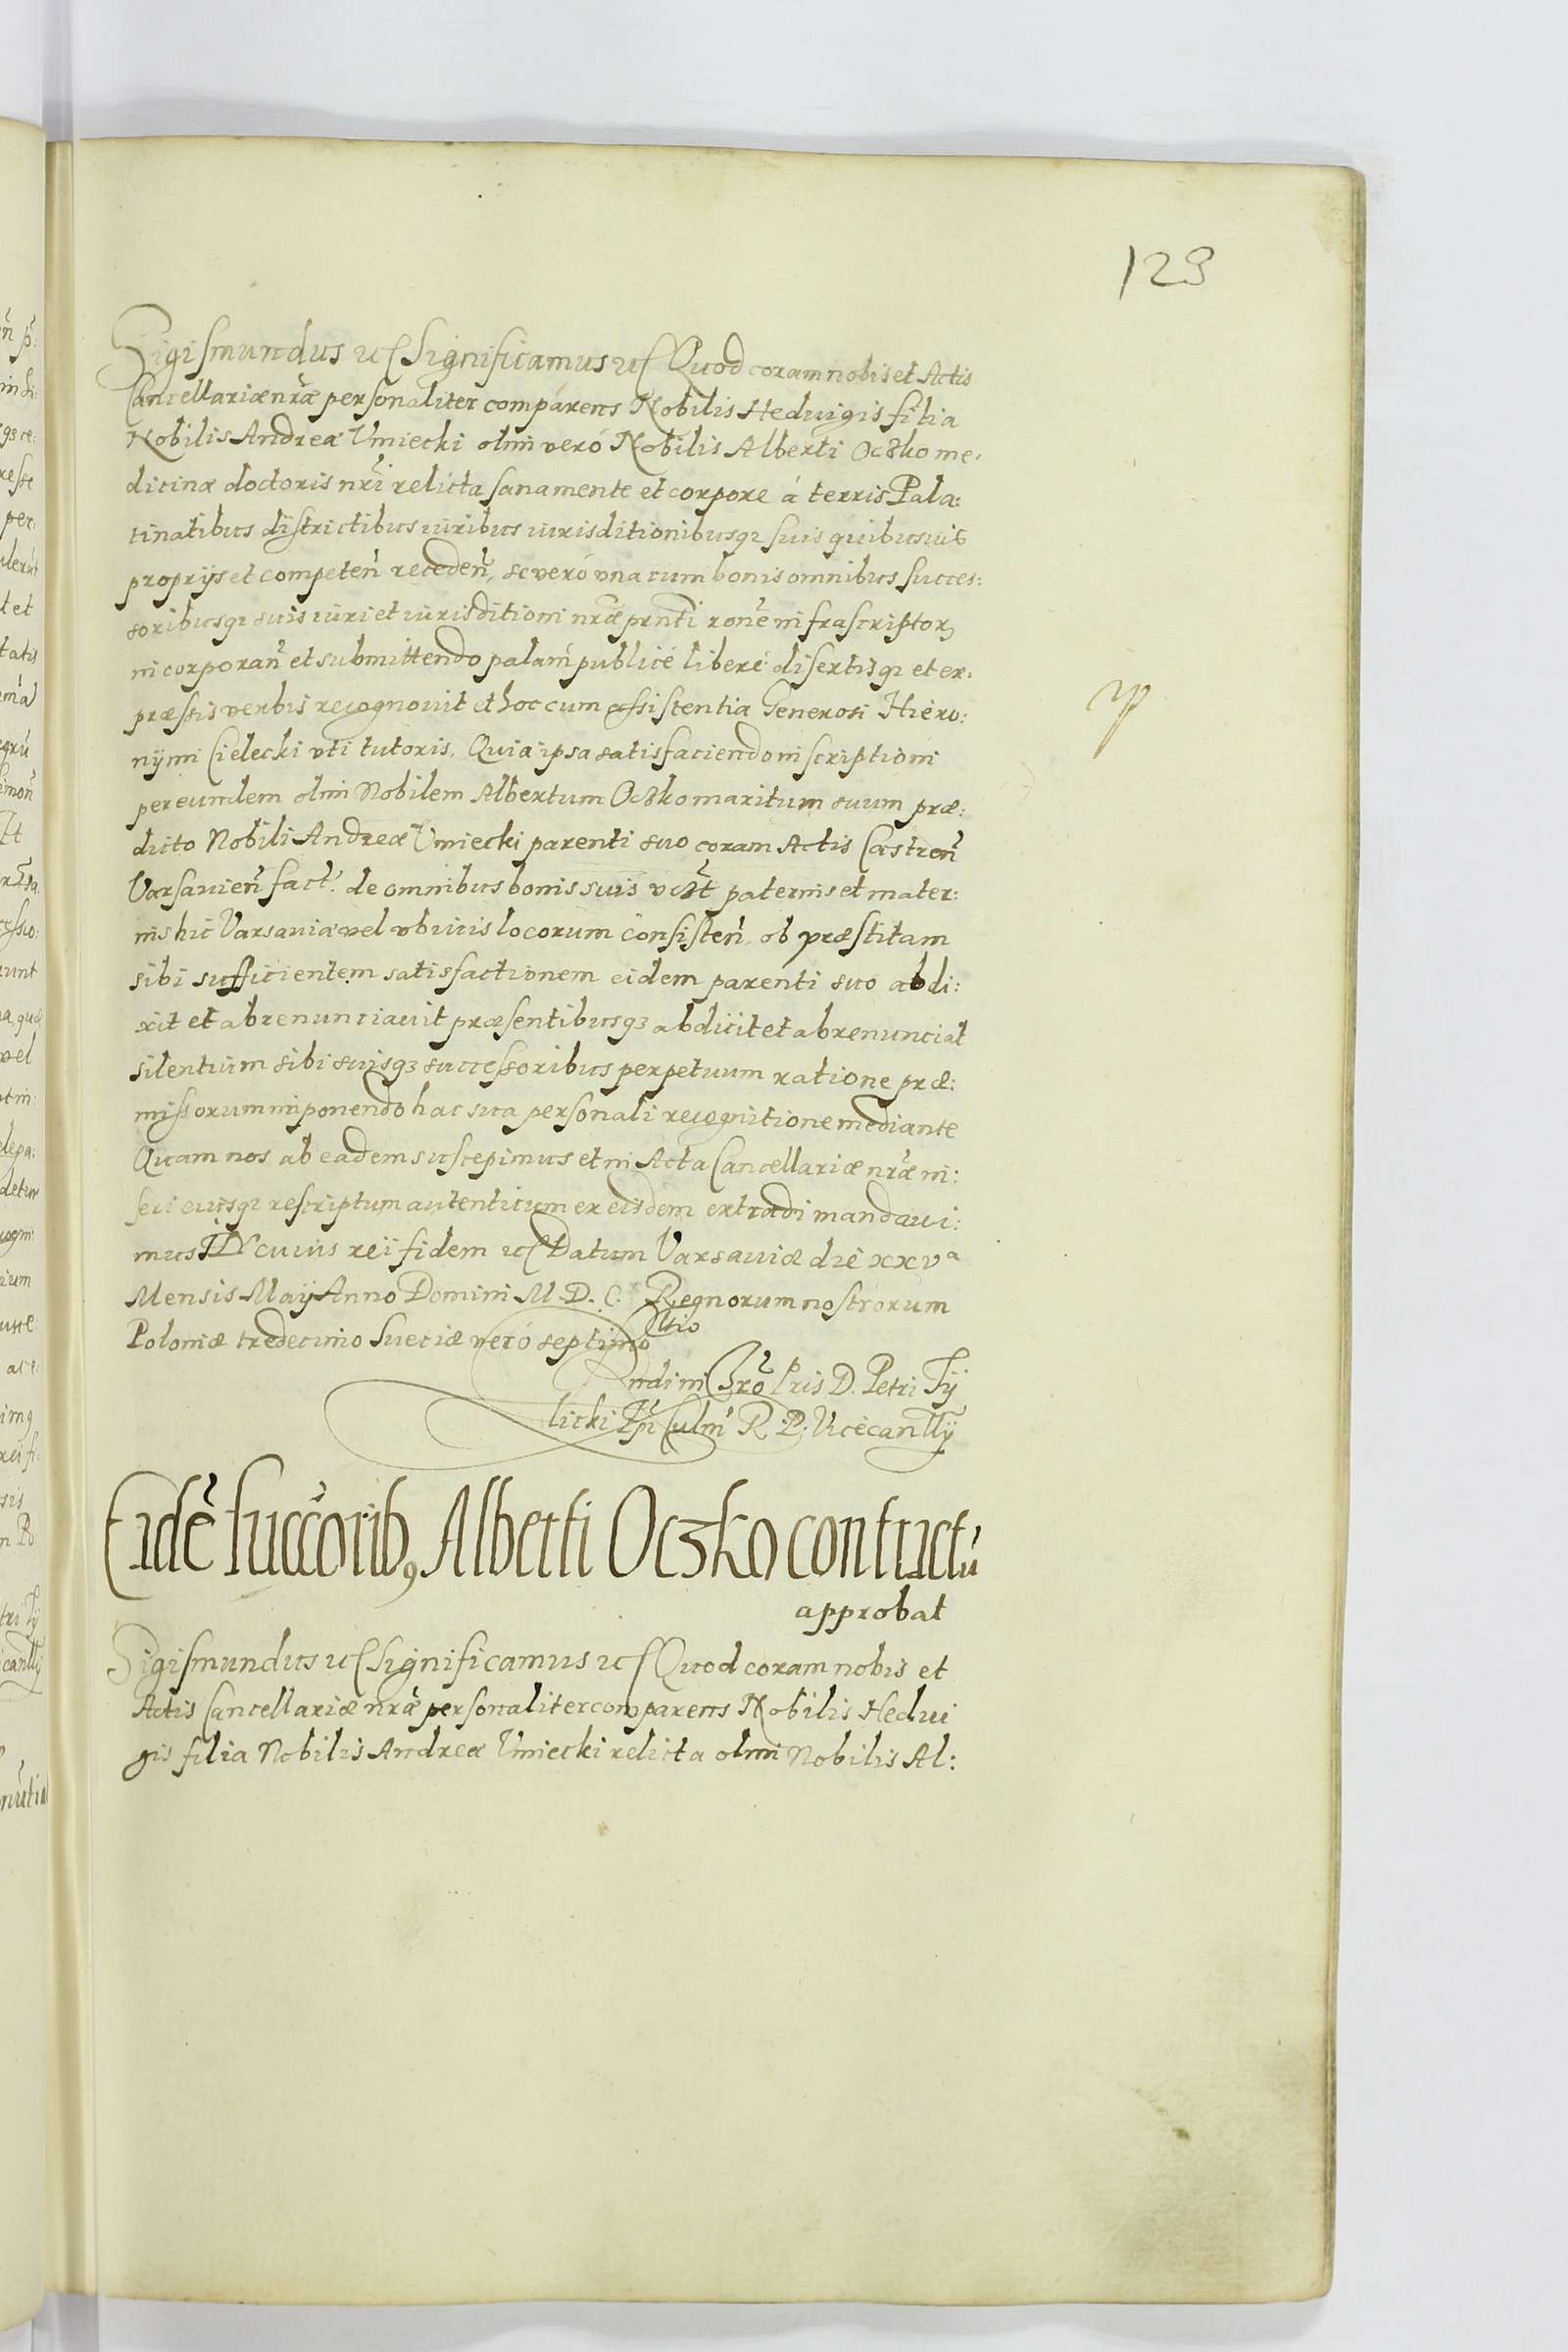 123
Sigismundus etc Significamus etc Quod coram nobis et Actis
Cancellariæ nr̃æ personaliter comparens Nobilis Heduigis filia
Nobilis Andreæ Vmiecki olim veró Nobilis Alberti Oczko me:
dicinæ doctoris nr̃i relicta sana mente et corpore á terris Pala:
tinatibus districtibus iuribus iurisditionibusq3 suis quibusuis
proprijs et competeñ recedeñ, se veró vna cum bonis omnibus succes:
soribusq3 suis iuri et iurisditioni nr̃æ prñti rõne infrascriptor
incorporañ et submittendo palam publicé liberé disertisq3 et ex:
præssis verbis recognouit et hoc cum assistentia Generosi Hiero:
nÿmi Cielecki vti tutoris. Quia ipsa satisfaciendo inscriptioni
per eundem olim Nobilem Albertum Oczko maritum suum præ:
dicto Nobili Andreæ Vmiecki parenti suo coram Actis Castreñ
Varsauieñ fact. de omnibus bonis suis vczt paternis et mater:
nis hic Varsauiæ vel vbiuis locorum consisteñ ob præstitam
sibi sufficientem satisfactionem eidem parenti suo abdi:
xit et abrenunciauit præsentibusq3 abdicit et abrenunciat
silentium sibi suisq3 successoribus perpetuum ratione præ:
missorum imponendo hac sua personali recognitione mediante
Quam nos ab eadem suscepimus et in Acta Cancellariæ nr̃æ in:
seri eiusq3 rescriptum autenticum ex eisdem extradi mandaui:
mus IN cuius rei fidem etc Datum Varsauiæ die xxvᵃ
Mensis Maÿ Anno Domini M. D. C. Regnorum nostrorum
Poloniæ tredecimo Sueciæ veró septimo
ltio
Rndi in Chrõ Pris D. Petri Tÿ
licki Ep̃i Culm̃ R. P. Vicecanllÿ
Eidẽ succorib9 Alberti Oczko contractũ
approbat
Sigismundus etc Significamus etc Quod coram nobis et
Actis Cancellariæ nr̃æ personaliter comparens Nobilis Hedui
gis filia Nobilis Andreæ Vmiecki relicta olim Nobilis Al: